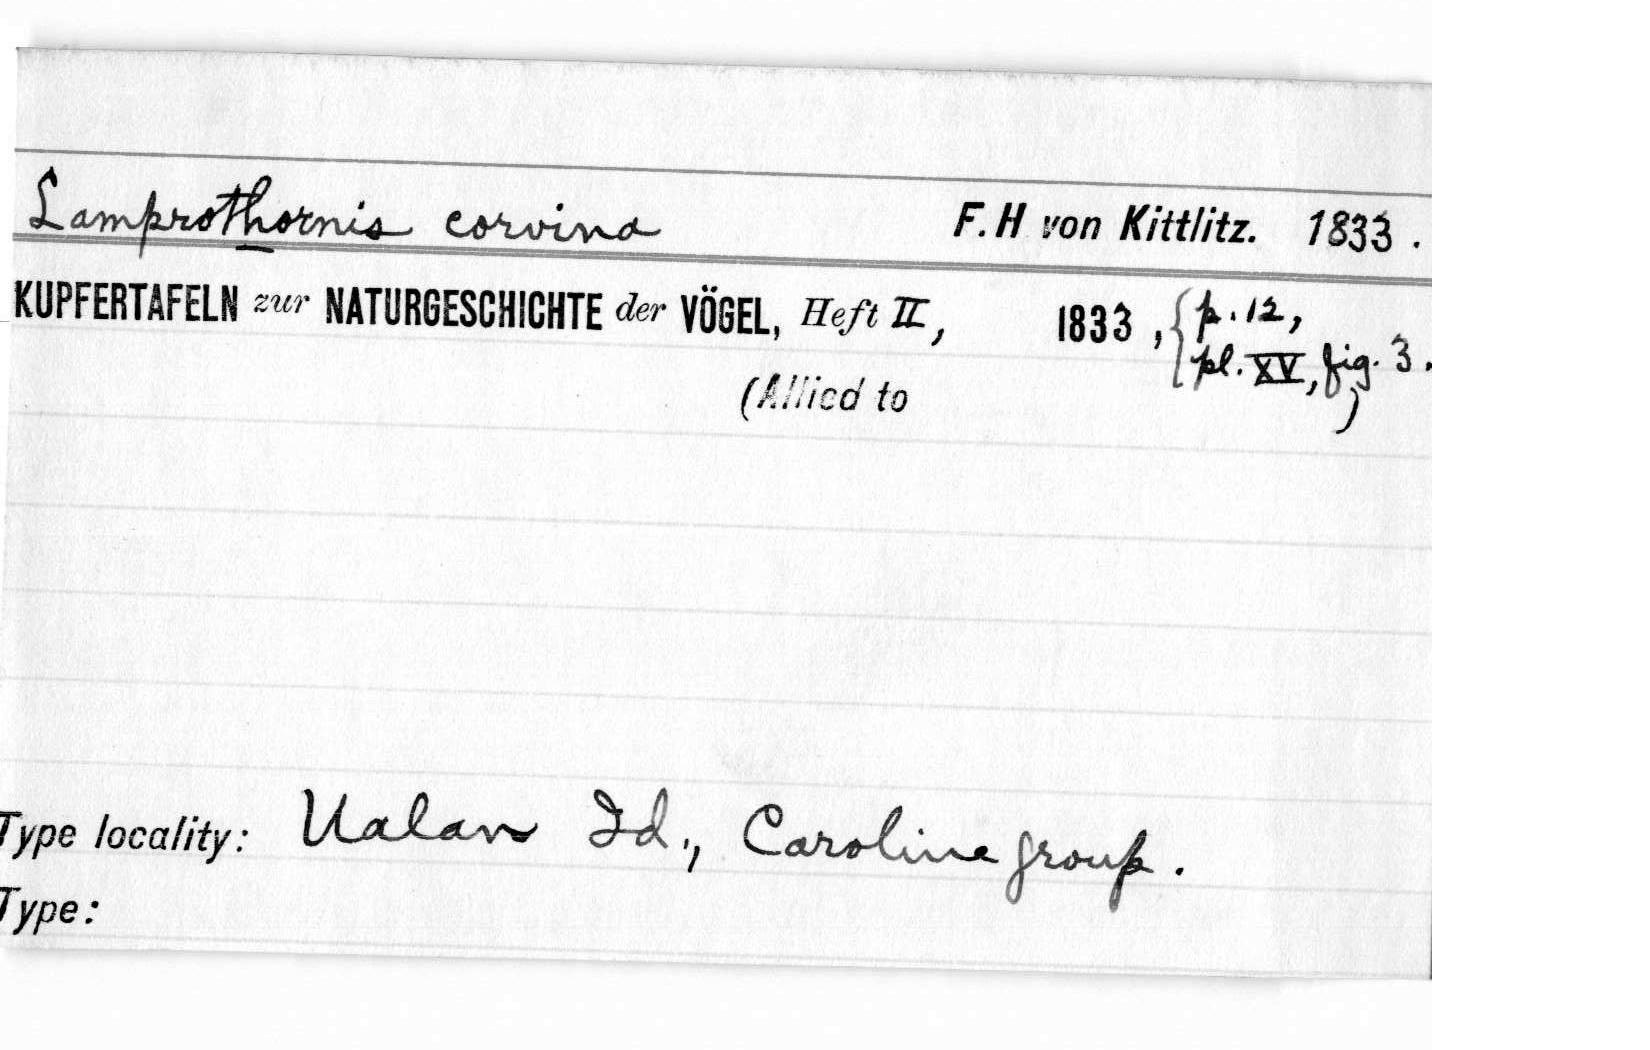 Lamprothornis corvina F.H von Kittlitz. 1833.
KUPFERTAFELN zur NATURGESCHICHTE der VÖGEL, Heft II, 1833, { p. 12,
pl. XV, fig. 3.
(Allied to )
Type locality: Ualan Id., Caroline group.
Type: